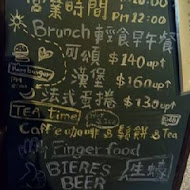 營業時間
PM 12:00
Brunch 輕食早午餐
可頌 $140 up↑
漢堡 $160 up↑
法式蛋捲 $130 up↑
TEA time
Caffe 咖啡 & 鬆餅 & Tea
Finger food
BIERES
BEER
生啤